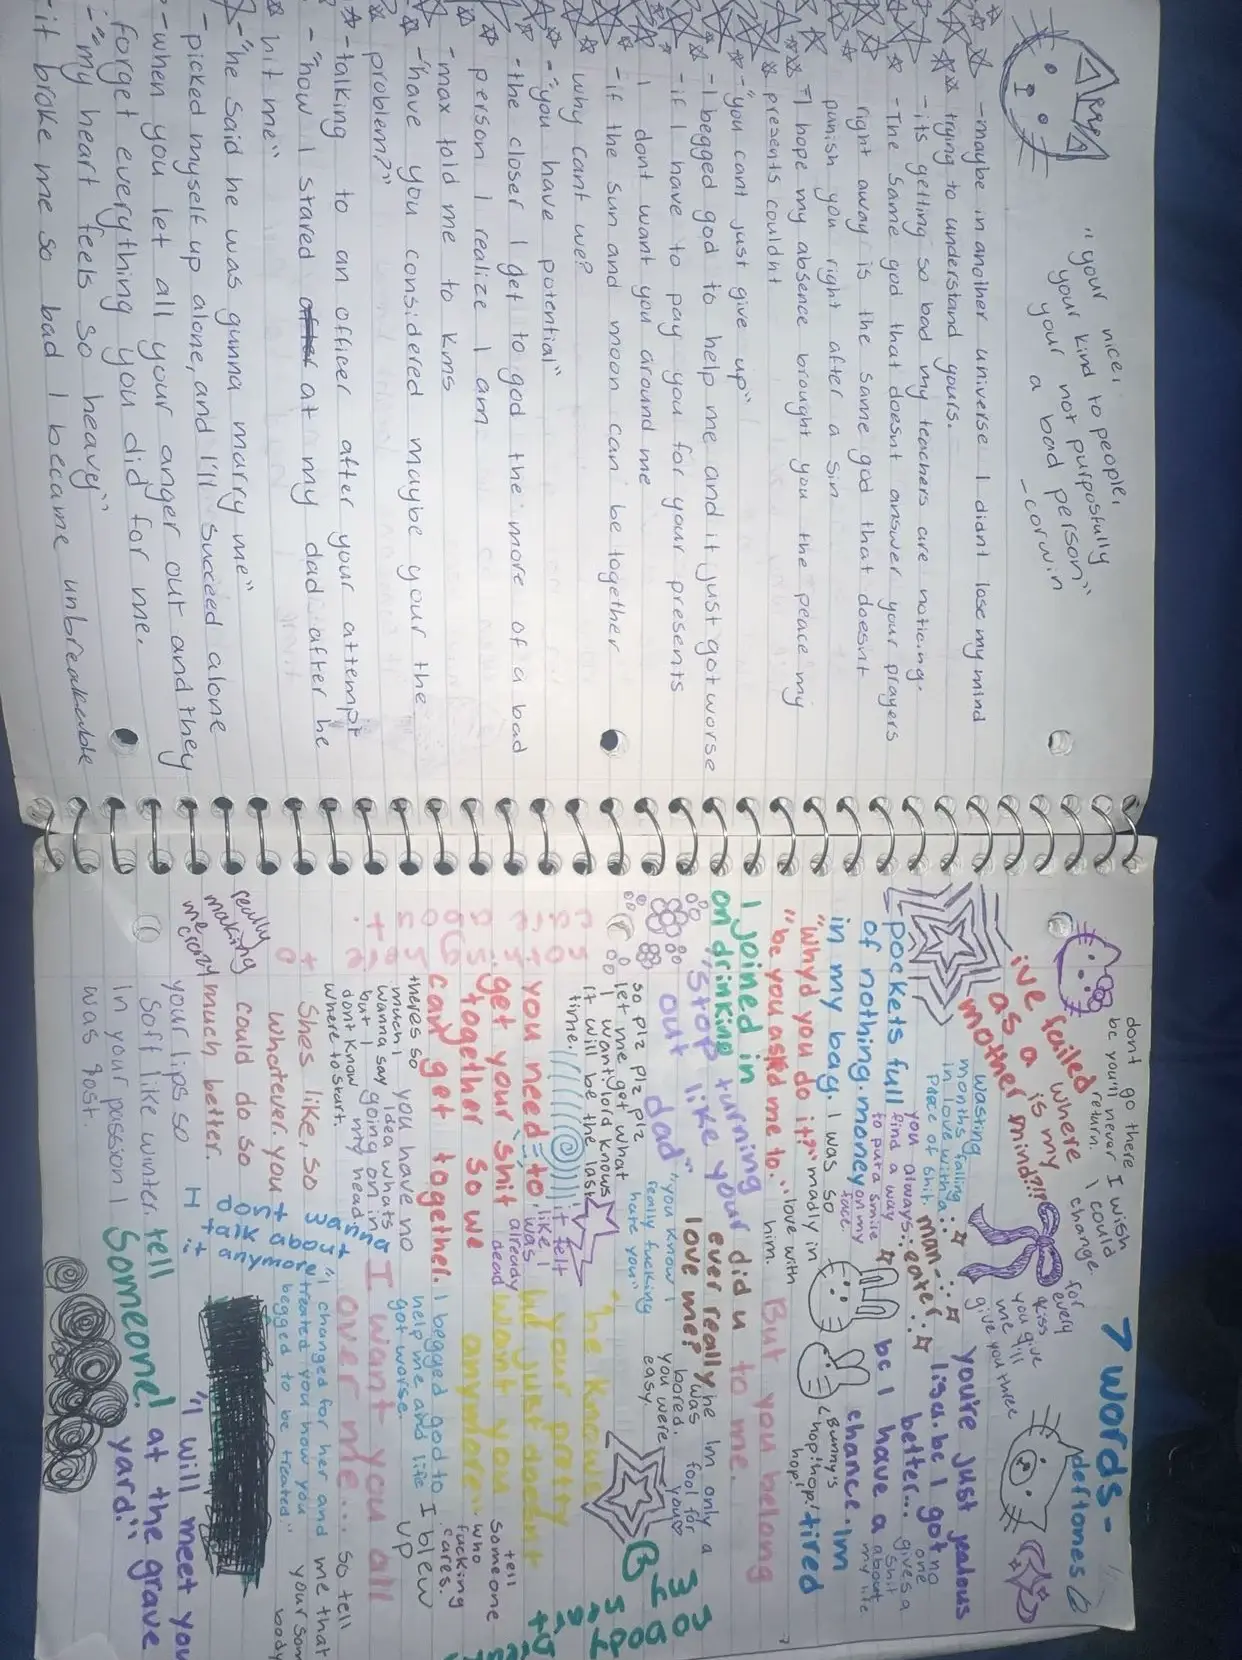 "your nice,
your kind to people,
your not purposfully
your a bad person"
-corwin
-maybe in another universe I didnt lose my mind
trying to understand yours.
-its getting so bad my teachers are noticing.
-The same god that doesnt answer your prayers
right away is the same god that doesnt
punish you right after a sin
-I hope my absence brought you the peace my
presents couldnt
-"you cant just give up"
-I begged god to help me and it just got worse
-if I have to pay you for your presents
I dont want you around me
-if the sun and moon can be together
why cant we?
-"you have potential"
-the closer I get to god the more of a bad
person I realize I am
-max told me to kms
-"have you considered maybe your the
problem?"
-talking to an officer after your attempt
-"how I stared at my dad after he
hit me"
-"he said he was gunna marry me"
-picked myself up alone, and I'll succeed alone
-when you let all your anger out and they
forget everything you did for me.
-"my heart feels so heavy"
-it broke me so bad I became unbreakable
7 words-
deftones
dont go there I wish
be you'll never I could
return. change.
for
every
kiss
you give
me ill
give you three
ive failed
as a
mother
where
is my
mind?!?
wasting
months falling
in love with a
piece of shit.
man-
eater
you always
find a way
to put a smile
on my
face
youre just jealous
lisa. bc I got
better...
no
one
gives a
shit
about
my life
pockets full
of nothing. money
in my bag. I was so
madly in
love with
him.
bc I have a
chance. Im
tired
<Bunny's
hop! hop!
hop!
"Why'd you do it?"
"be you asked me to..."
But you belong
to me.
I joined in
on drinking
"stop turning
out like your
dad"
did u
ever really
love me?
he
was
bored.
you were
easy.
Im only a
fool for
you♡
"you know I
really fucking
hate you"
so plz plz plz
let me get what
I want. lord knows
it will be the last
time.
"he knows
your pretty
he just doesnt
want you
anymore"
you need to
get your shit
together so we
can get together.
it felt
like I
was
already
dead
tell
someone
who
fucking
cares.
I begged god to
help me and life
got worse.
I blew
up
theres so
much I
wanna say
but I
dont know
where to start.
you have no
idea whats
going on in
my head
I want you all
over me...
so tell
me that
your som
body
Shes like, so
whatever. you
could do so
much better.
really
making
me crazy
I
dont wanna
talk about
it anymore
"I changed for her and
treated you how you
begged to be treated."
your lips so
soft like winter.
in your passion I
was lost.
tell
Someone!
"I will meet you
at the grave
yard."